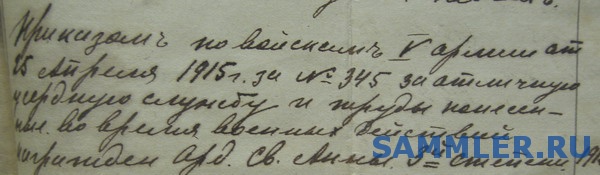 Приказомъ по войскамъ V армии от
25 Апреля 1915 г. за № 345 за отличную
усердную службу и труды понесен-
ные во время военных действий
награжден Орд. Св. Анны 3й степени
SAMMLER.RU